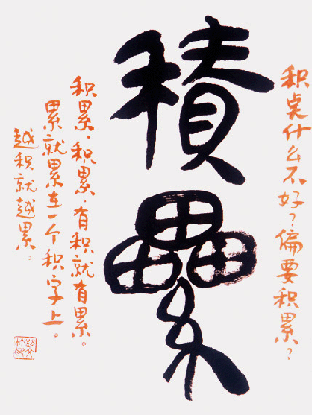 积点什么不好？偏要积累？
積纍
积累·积累·有积就有累。
累就累在一个积字上。
越积就越累：